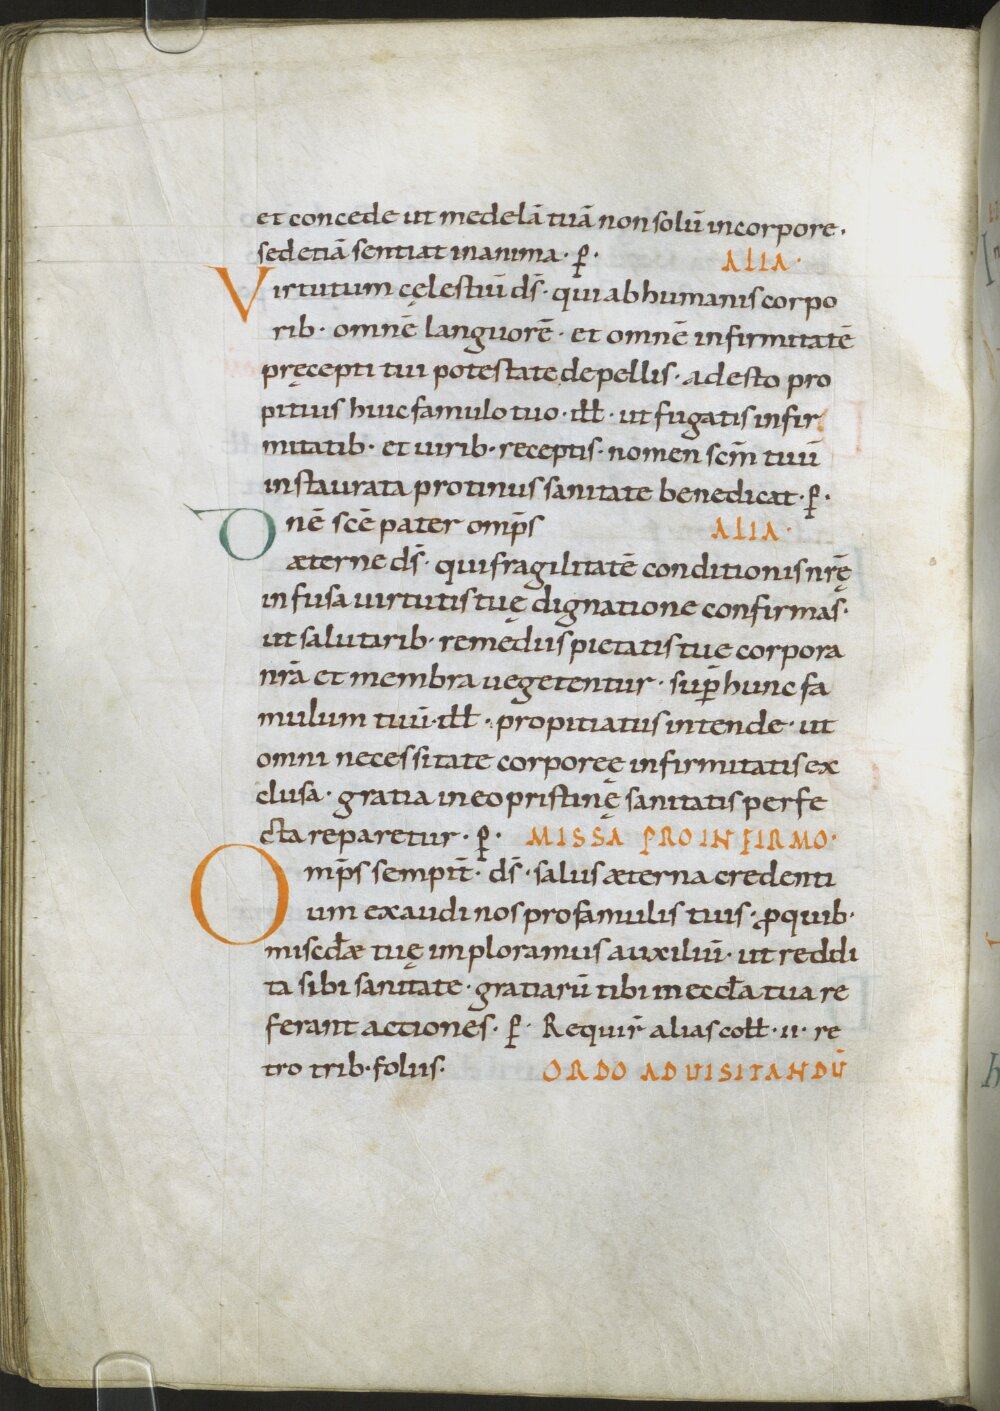 et concede ut medelā tuā non solū in corpore.
sed etiā sentiat in anima · p̄ · ALIA ·
Virtutum cęlestiū ds̄ · qui ab humanis corpo
rib · omnē languorē · et omnē infirmitatē
pręcepti tui potestate depellis · adesto pro
pitius huic famulo tuo · ill̄ · ut fugatis infir
mitatib · et uirib · receptis · nomen scm̄ tuū
instaurata protinus sanitate benedicat · p̄ ·
Dnē scē pater omp̄s ALIA ·
æterne ds̄ · qui fragilitatē conditionis nrę̄
infusa uirtutis tuę dignatione confirmas ·
ut salutarib · remediis pietatis tue corpora
nrā et membra uegetentur · sup̄ hunc fa
mulum tuū · ill̄ · propitiatus intende · ut
omni necessitate corporeę infirmitatis ex
clusa · gratia in eo pristinę sanitatis perfe
cta reparetur · p̄ · MISSA PRO INFIRMO ·
Omp̄s sempit̄ · ds̄ · salus æterna credenti
um exaudi nos pro famulis tuis · ꝓ quib ·
miscd̄æ tuę imploramus auxiliū · ut reddi
ta sibi sanitate · gratiarū tibi in eccl̄a tua re
ferant actiones · p̄ · Requir̄ alias coll̄ · ii · re
tro trib · foliis · ORDO AD UISITANDŪ